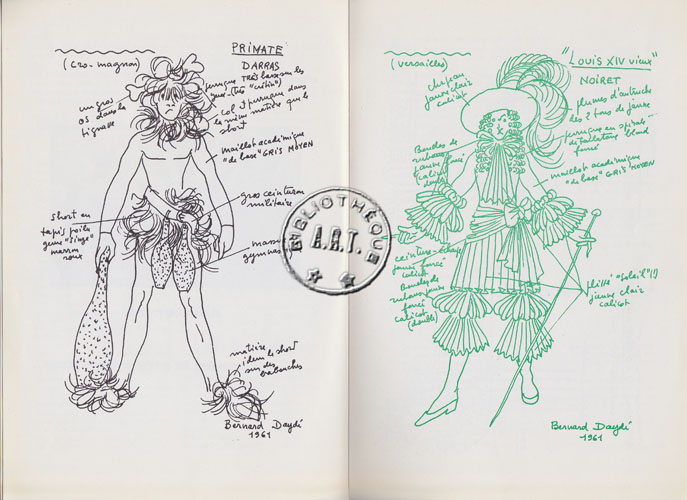 (Cro-magnon)
PRIMATE
DARRAS
un gros
os dans la
tignasse
perruque TRÈS basse sur les
yeux - (très "crétin")
col d perruque dans
la même matière que le
short
maillot académique
"de base" GRIS MOYEN
gros ceinturon
militaire
short en
tapis poils
genre "singe"
marron
roux
gymnas
matière
idem le short
sur des
babouches
Bernard Daydé
1961
BIBLIOTHÈQUE
A.R.T.
(Versailles)
"Louis XIV vieux"
NOIRET
chapeau
jaune clair
calicot
plumes d'autruche
des 2 tons de jaune
perruque en spirale
de blond
foncé
Boucles de
rubans jaune
foncé
calicot
double
maillot académique
"de base" GRIS MOYEN
ceinture-écharpe
jaune foncé
calicot
Boucles de
rubans jaune
foncé
calicot
(double)
plissé "soleil" (!)
jaune clair
calicot
Bernard Daydé
1961